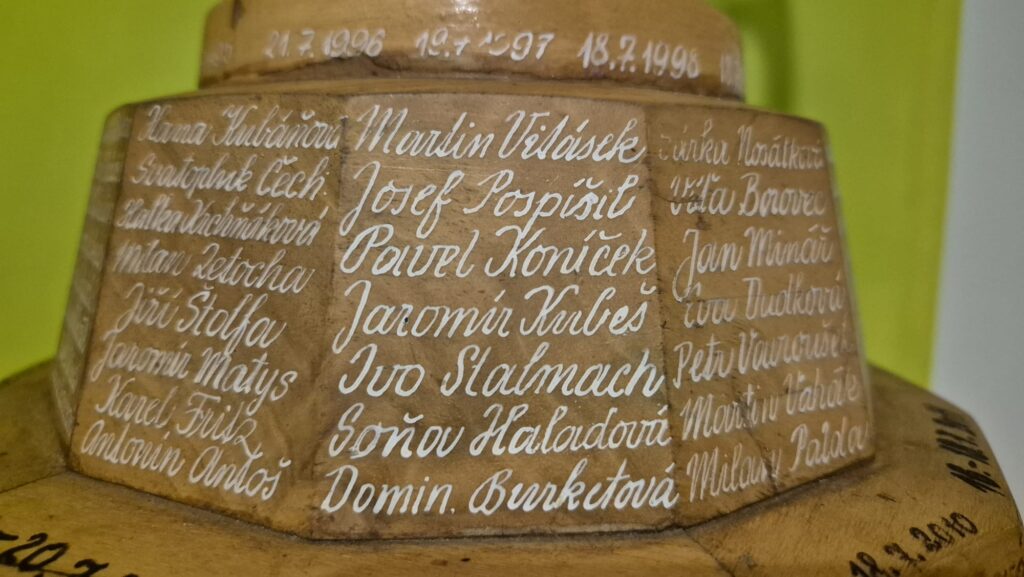 21.7.1996 19.7.1997 18.7.1998
Hana Kubáňová
Svatopluk Čech
Milan Letocha
Jiří Štolfa
Jaromír Matys
Karel
Antonín Antoš
Martin Vitásek
Josef Pospíšil
Pavel Koníček
Jaromír Kubeš
Ivo Stalmach
Soňa Haladová
Domin. Burketová
Nosálková
Víťa Borovec
Jan Minář
Iva Dudková
Petr Vavroušek
Martin
Milan
20.7
18.7.2010